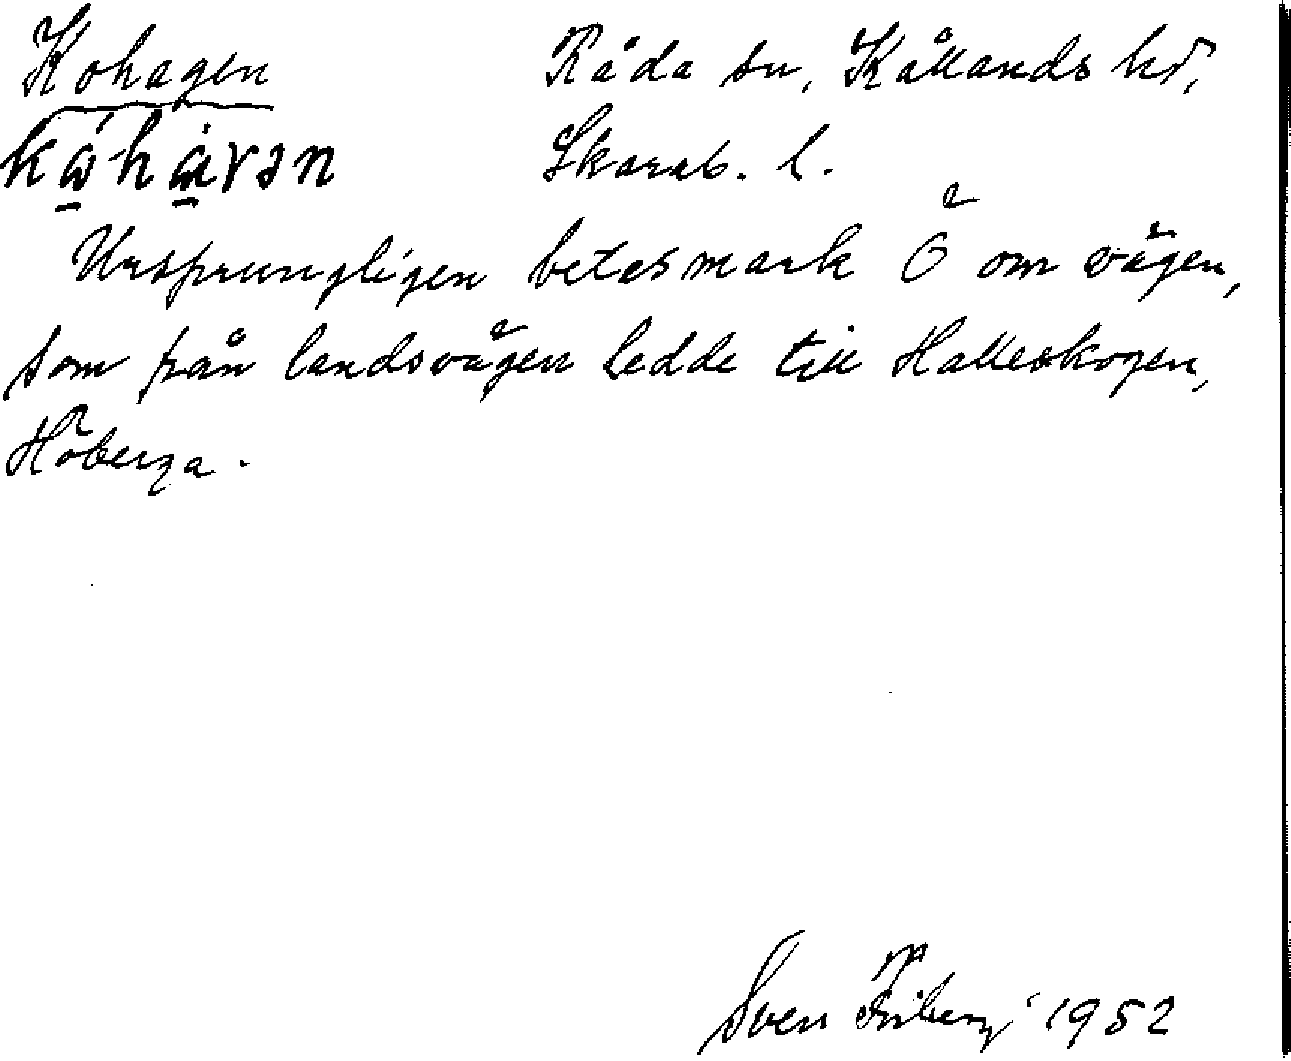 Kohagen Råda sn, Kållands hd,
kωhαγən Skarab. l.
Ursprungligen betesmark Ö om vägen,
som från landsvägen ledde till Halleskogen,
Höberga.
Sven Friberg 1952